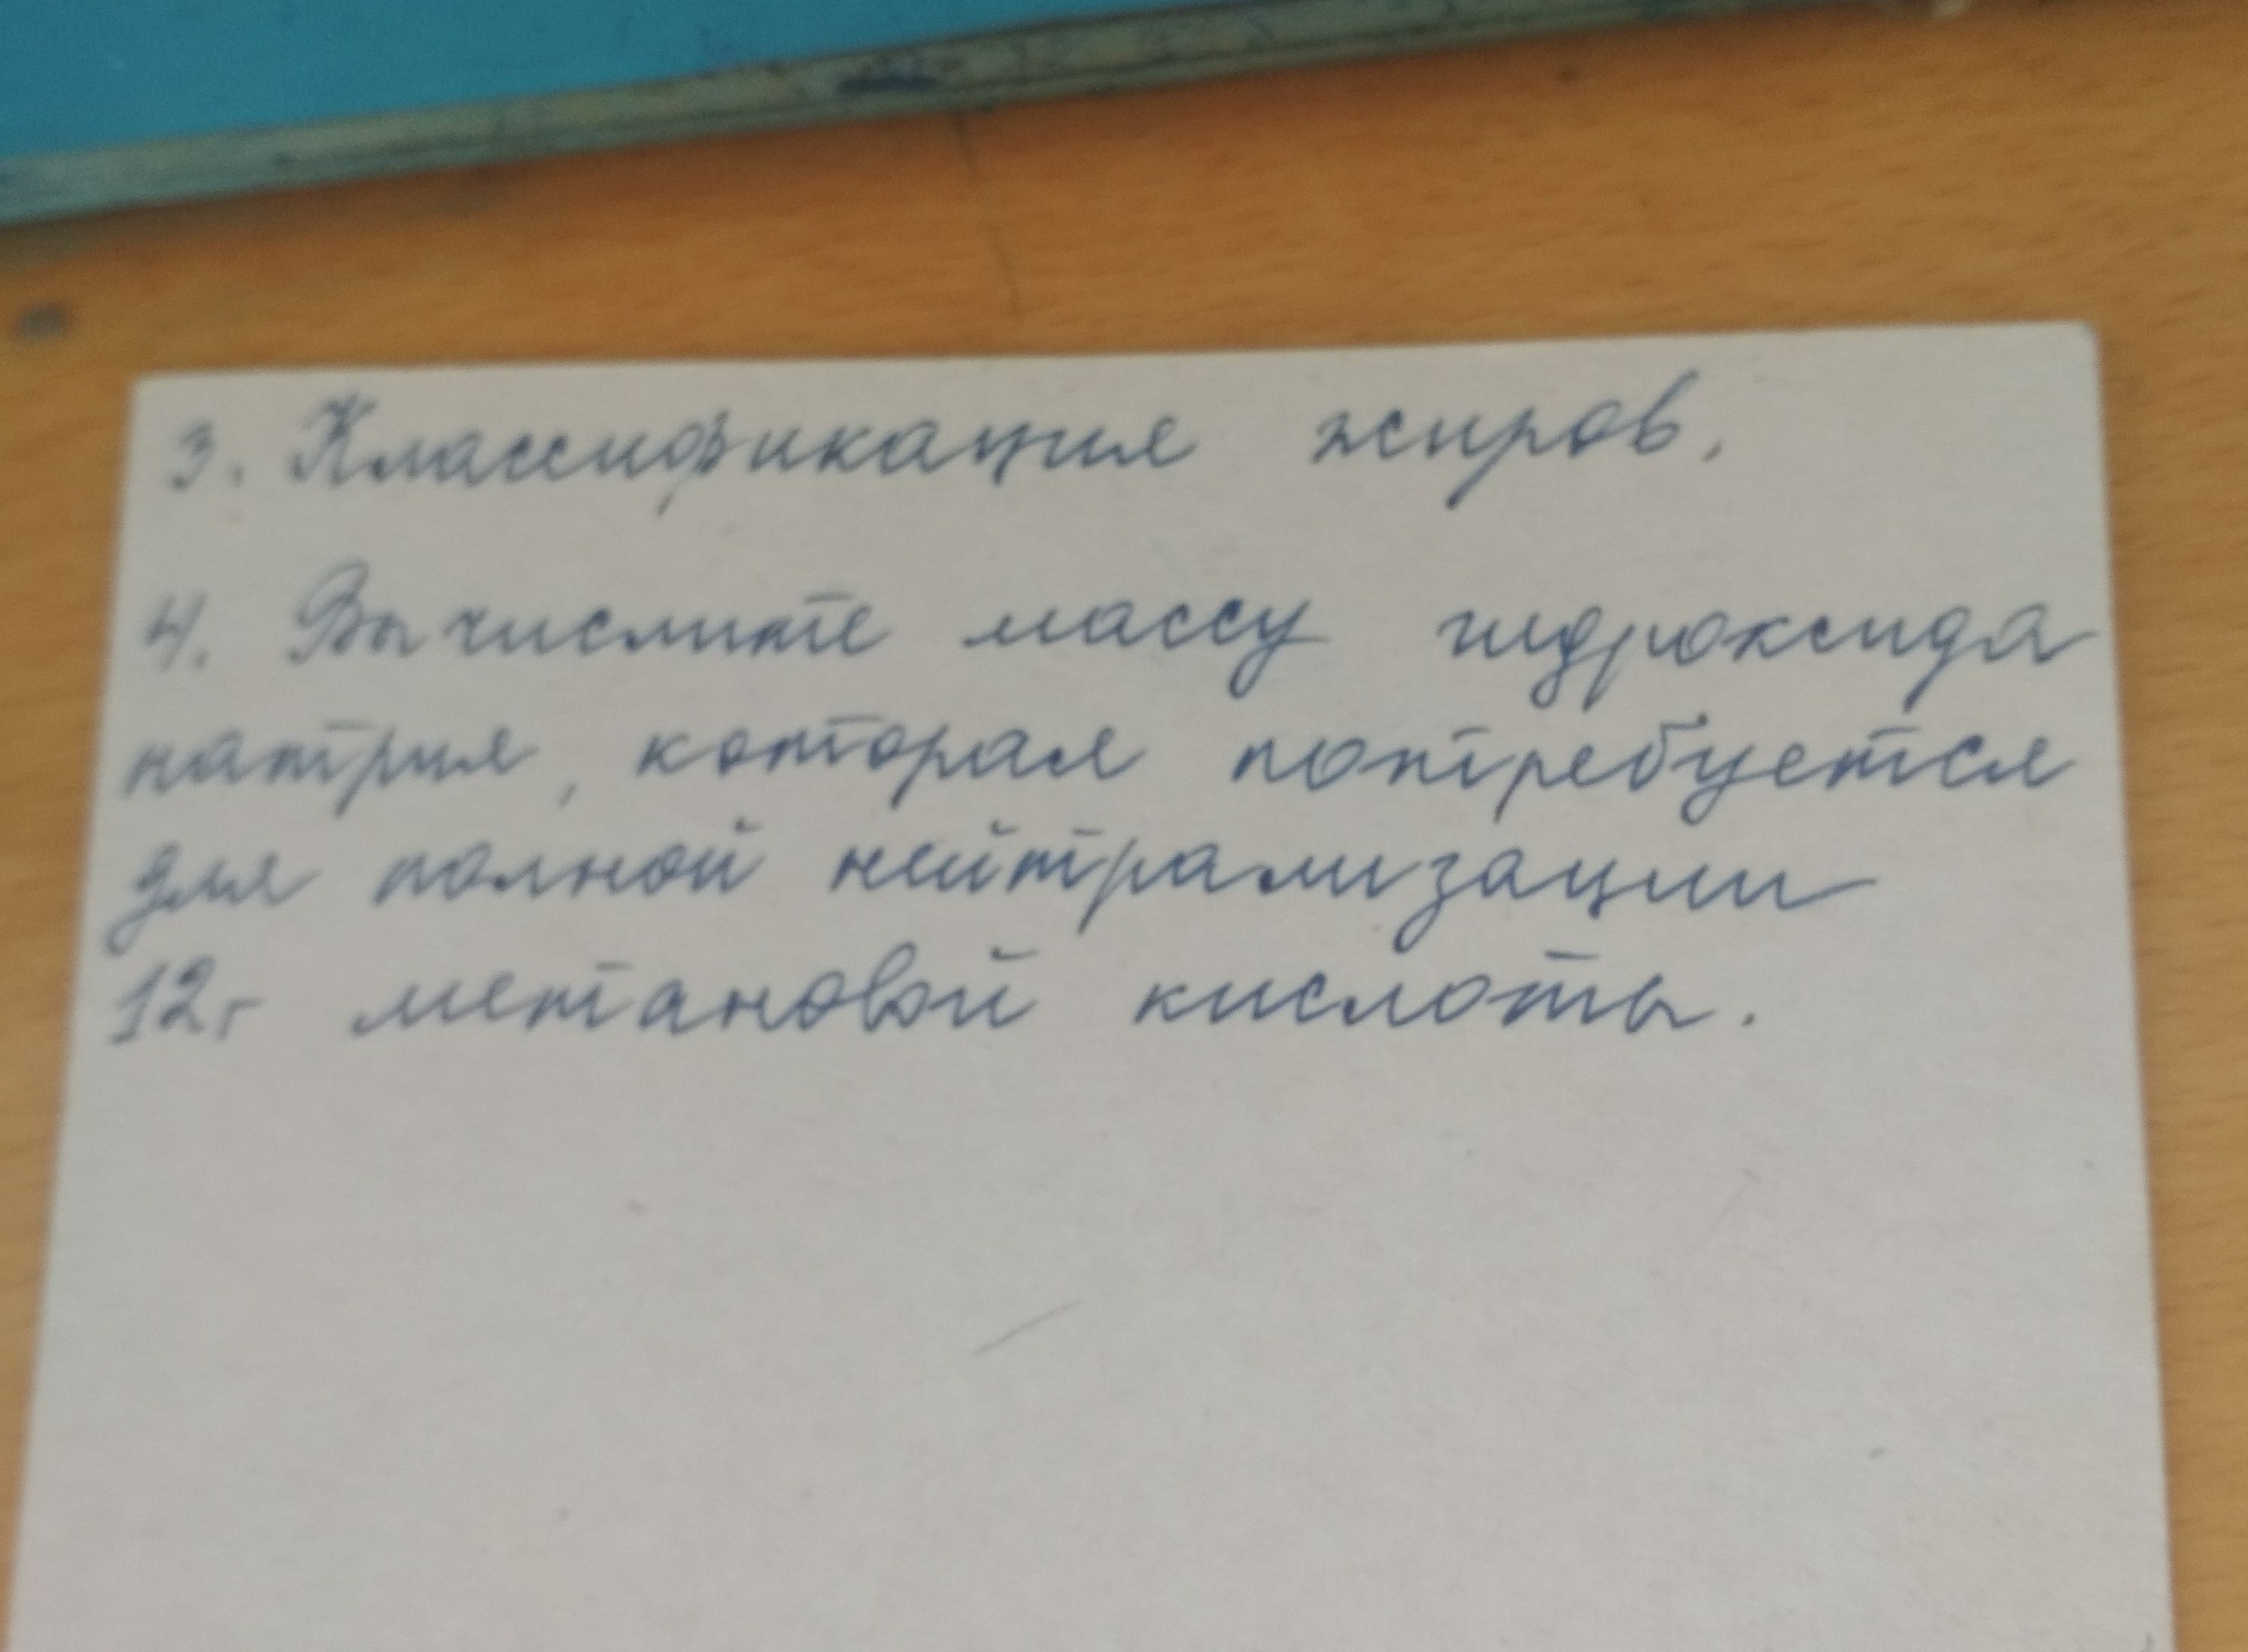 3. Классификация жиров.
4. Вычислите массу гидроксида
натрия, которая потребуется
для полной нейтрализации
12г метановой кислоты.